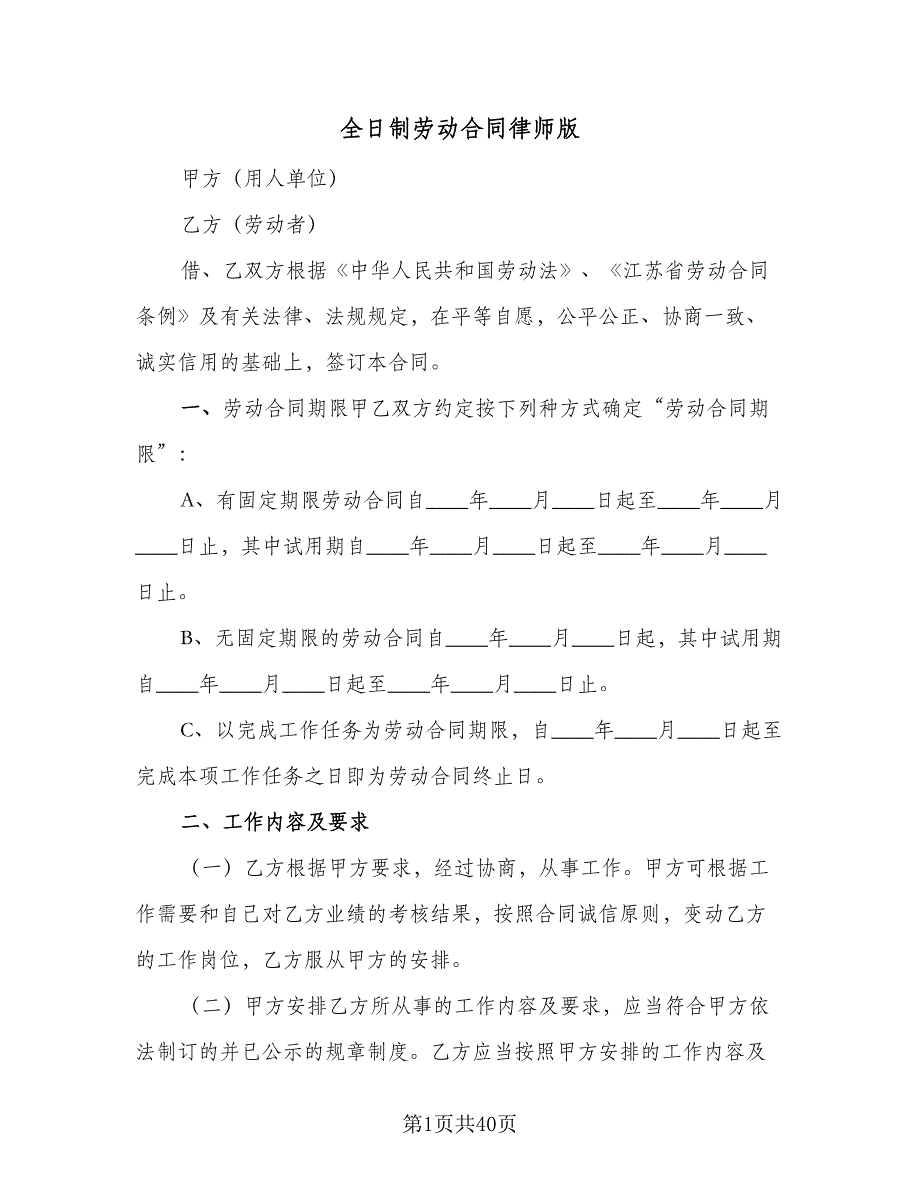 全日制劳动合同律师版
甲方（用人单位）
乙方（劳动者）
借、乙双方根据《中华人民共和国劳动法》、《江苏省劳动合同
条例》及有关法律、法规规定，在平等自愿，公平公正、协商一致、
诚实信用的基础上，签订本合同。
一、劳动合同期限甲乙双方约定按下列种方式确定“劳动合同期
限”：
A、有固定期限劳动合同自____年____月____日起至____年____月
____日止，其中试用期自____年____月____日起至____年____月____
日止。
B、无固定期限的劳动合同自____年____月____日起，其中试用期
自____年____月____日起至____年____月____日止。
C、以完成工作任务为劳动合同期限，自____年____月____日起至
完成本项工作任务之日即为劳动合同终止日。
二、工作内容及要求
（一）乙方根据甲方要求，经过协商，从事工作。甲方可根据工
作需要和自己对乙方业绩的考核结果，按照合同诚信原则，变动乙方
的工作岗位，乙方服从甲方的安排。
（二）甲方安排乙方所从事的工作内容及要求，应当符合甲方依
法制订的并已公示的规章制度。乙方应当按照甲方安排的工作内容及
第1页共40页